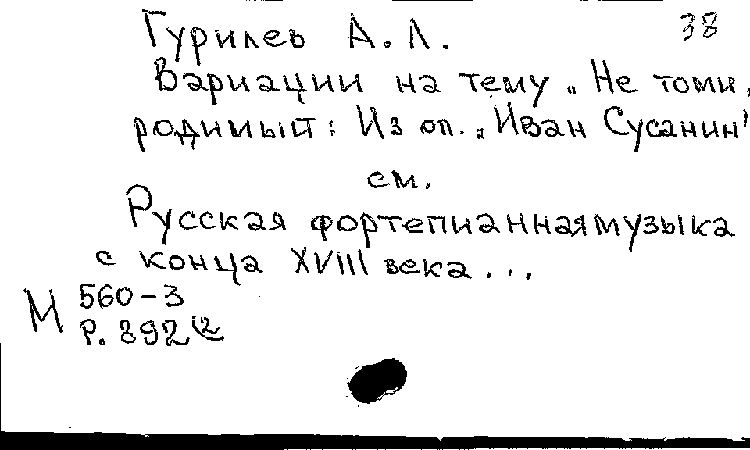 38
Гурилев А. Л.
Вариации на тему „Не томи,
родимый: Из оп. „Иван Сусанин"
см.
Русская фортепианная музыка
с конца XVIII века...
М 560-3
Р. 892(2